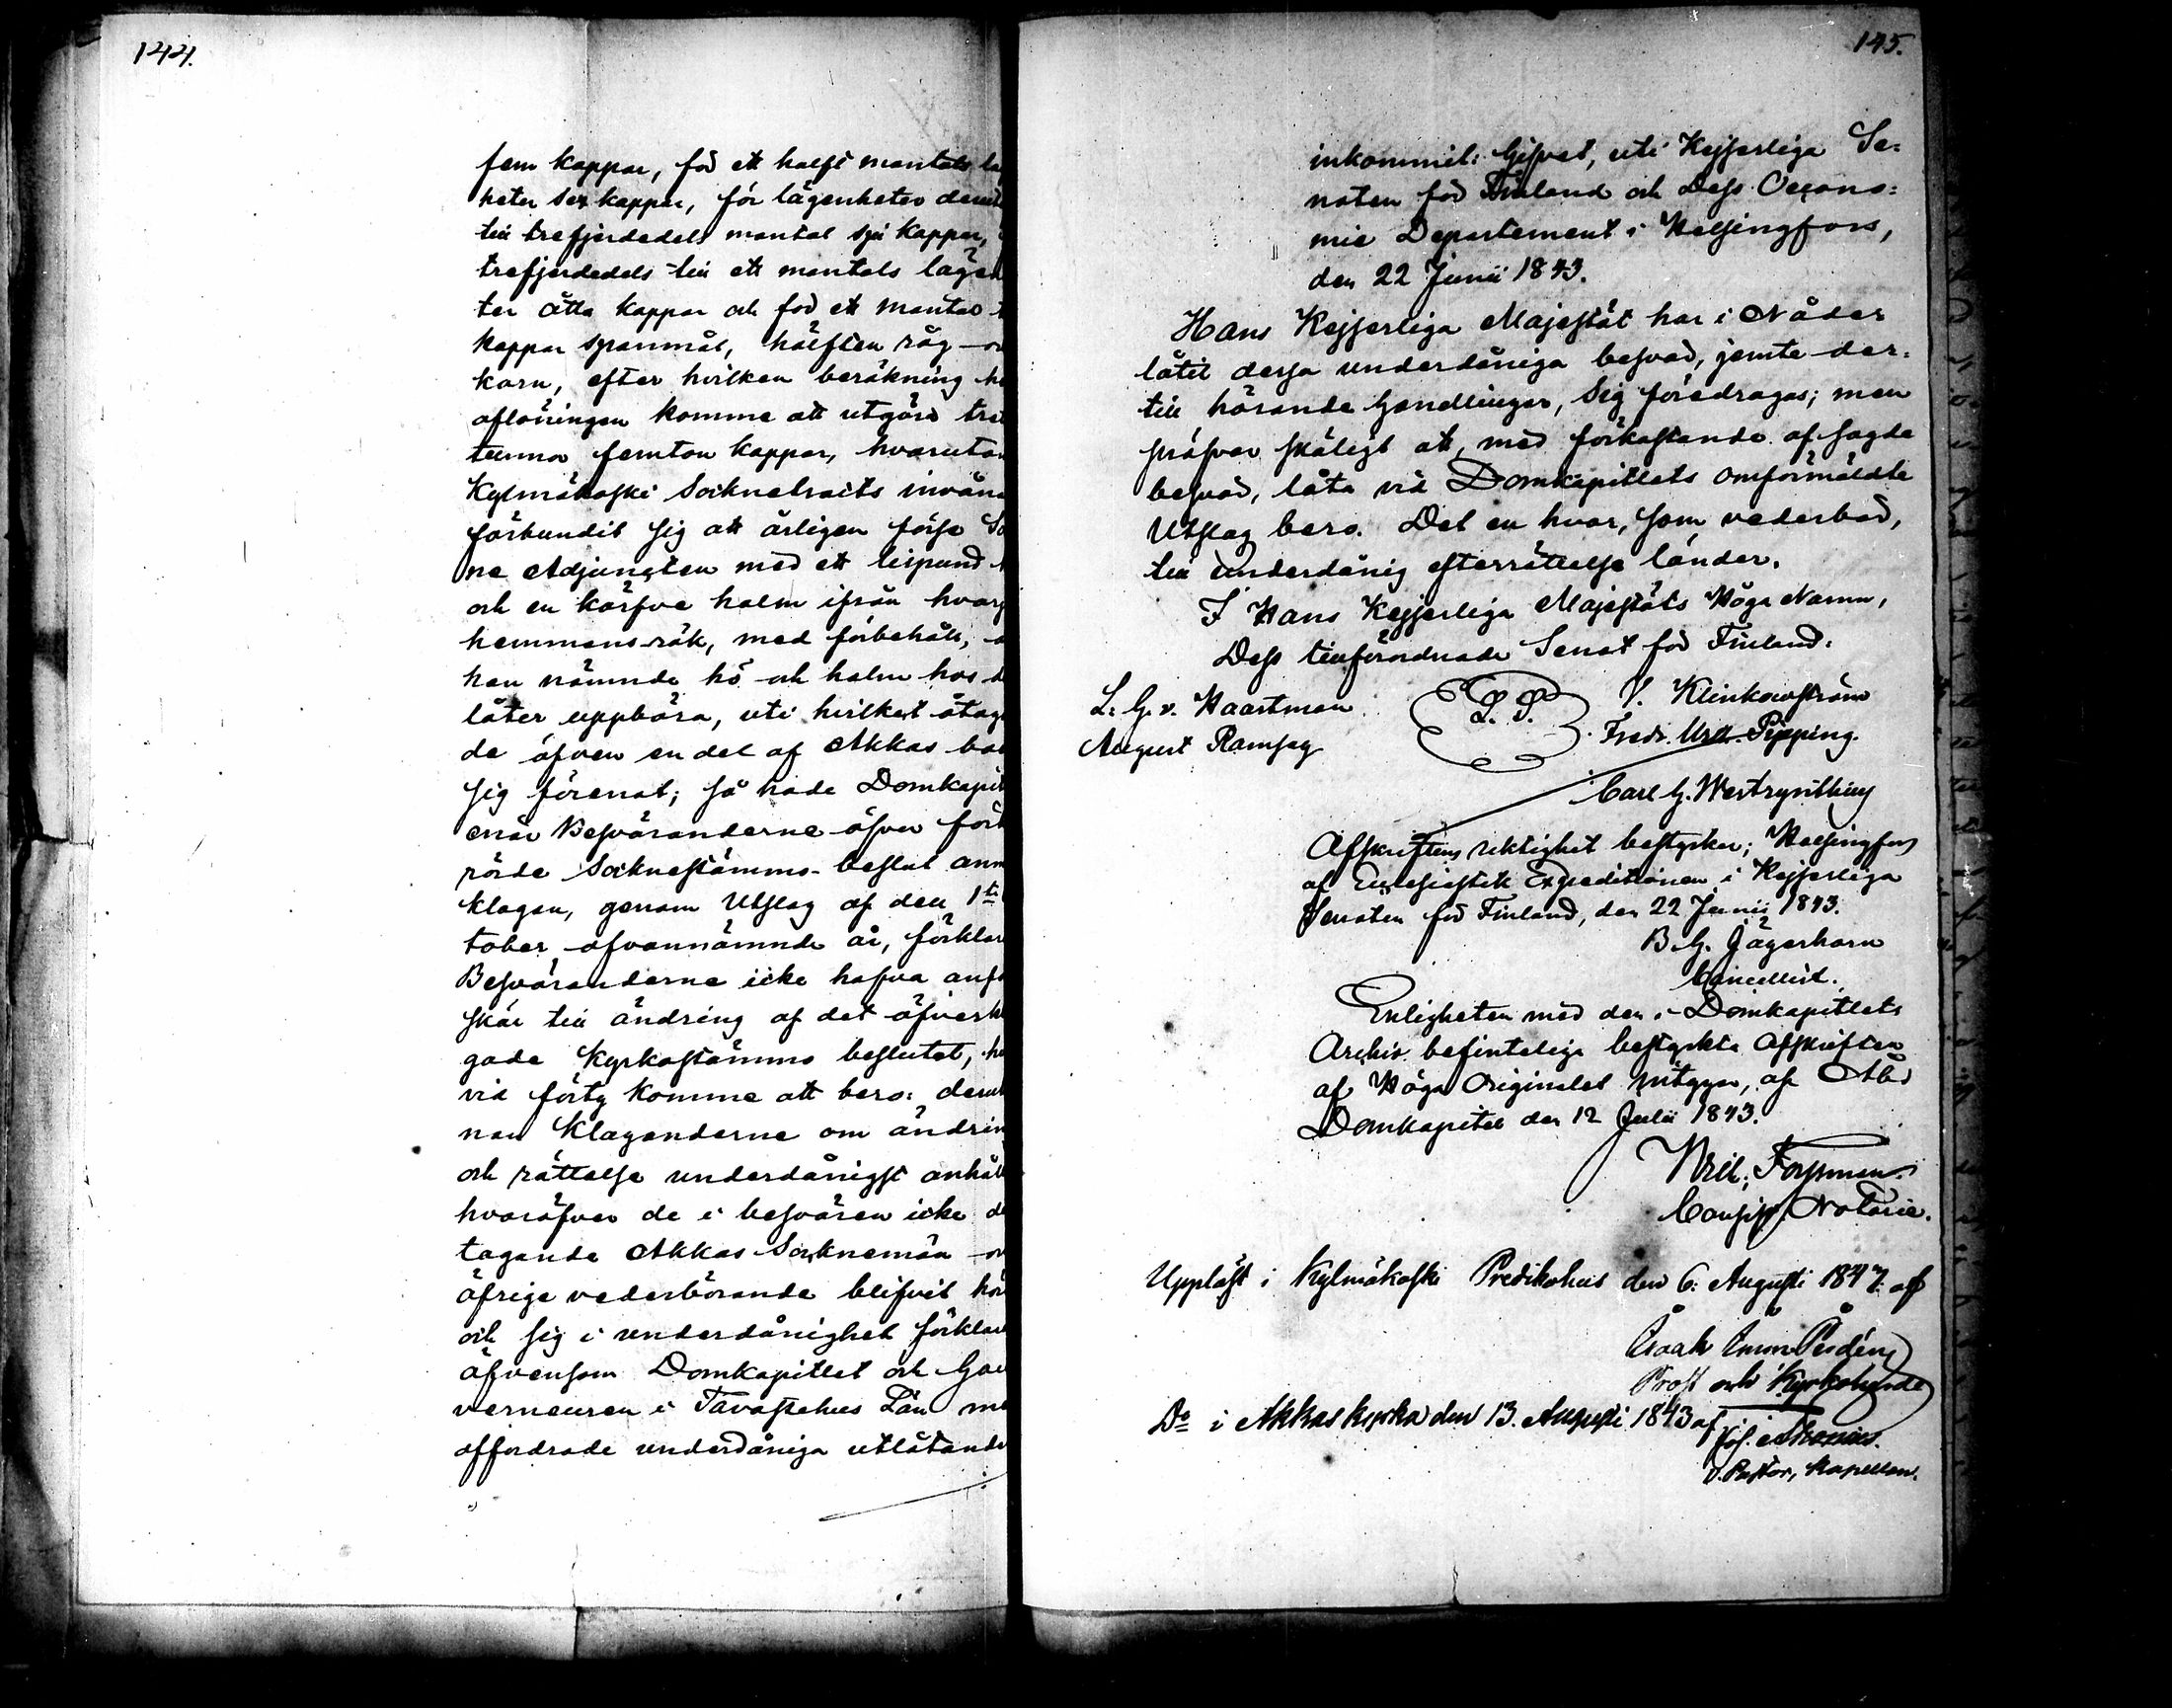 144.
fem kappar, för ett halft mantals lä
heter sex kappar, för lägenheter derut
till trefjerdedels mantal sju kappar,
trefjerdedels till ett mantals lägen
ter åtta kappar och för ett mantal
kappar spanmål, hälften råg
korn, efter hvilken beräkning
aflöningen komme att utgöra tret
tunnor femton kappar, hvarutan
Kylmäkoski Socknetracts invån
förbundit sig att årligen förse So
ne Adjungten med ett lispund
och en kärfve halm ifrån hvar
hemmans rök, med förbehåll,
han nämnde hö och halm hos
låter uppbära, uti hvilket åtag
de äfven en del af Akkas
sig förenat; så hade Domkapit
enär Besväranderne öfver för
rörde Socknestämmo-beslut anm
klagan, genom Utslag af den 1ste
tober ofvannämnde år, förklar
Besväranderne icke hafva anf
skäl till ändring af det öfverkl
gade Kyrkostämmo beslutet,
vid förty komme att bero;
nan Klaganderne om ändrin
och rättelse underdånigst anhål
hvaröfver de i besvären icke
tagande Akkas Socknemän
öfrige vederbörande blifvit hör
och sig i underdånighet förklar
äfvensom Domkapitlet och Gou
verneuren i Tavastehus Län
affordrade underdåniga utlåtande
145.
inkommit: Gifvet, uti Kejserliga Se=
naten för Finland och Dess Oecono=
mie Departement i Helsingfors,
den 22 Junii 1843.
Hans Kejserliga Majestät har i Nåder
låtit dessa underdåniga besvär, jemte der=
till hörande handlingar, Sig föredragas; men
pröfvar skäligt att, med förkastande af sagde
besvär, låta vid Domkapitlets omförmäldte
Utslag bero. Det en hvar, som vederbör,
till underdånig efterrättelse länder.
I Hans Kejserliga Majestäts Höga Namn,
Dess tillförordnade Senat för Finland:
L. G. v. Haartman L. S. S. Klinkowström
August Ramsay Fredr. Pipping.
Carl G.
Afskriftens riktighet bestyrker; Helsingfors
af Ecclesiastik Expeditionen i Kejserliga
Senaten för Finland, den 22 Junii 1843.
B. G. Jägerhorn
Cancellist.
Enligheten med den i Domkapitlets
Archiv befinteliga bestyrkta Afskriften
af Höga Originalet vitgyar, af Åbo
Domkapitel den 12 Julii 1843.
Wil. Forssman
Consist. Notarie.
Uppläst i Kylmäkoski Predikohus den 6. Augusti 1843. af
Prost och Kyrkoherde
Do i Akkas kyrka den 13. Augusti 1843 af
v. Pastor, Kapellan.